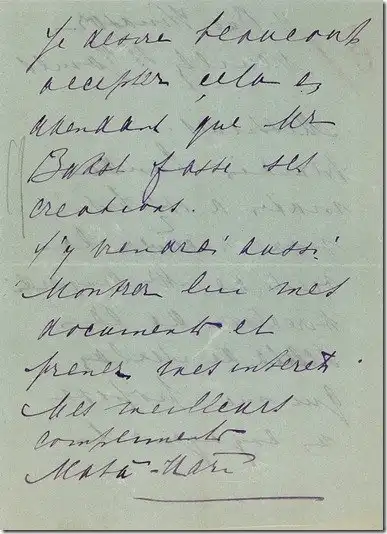 Je desire beaucoup
accepter cela en
attendant que Mr
Bakst fasse ses
creations.
J'y viendrai aussi
Montrer lui mes
documents et
prenez mes interets.
Mes meilleurs
compliments
Mata-Hari